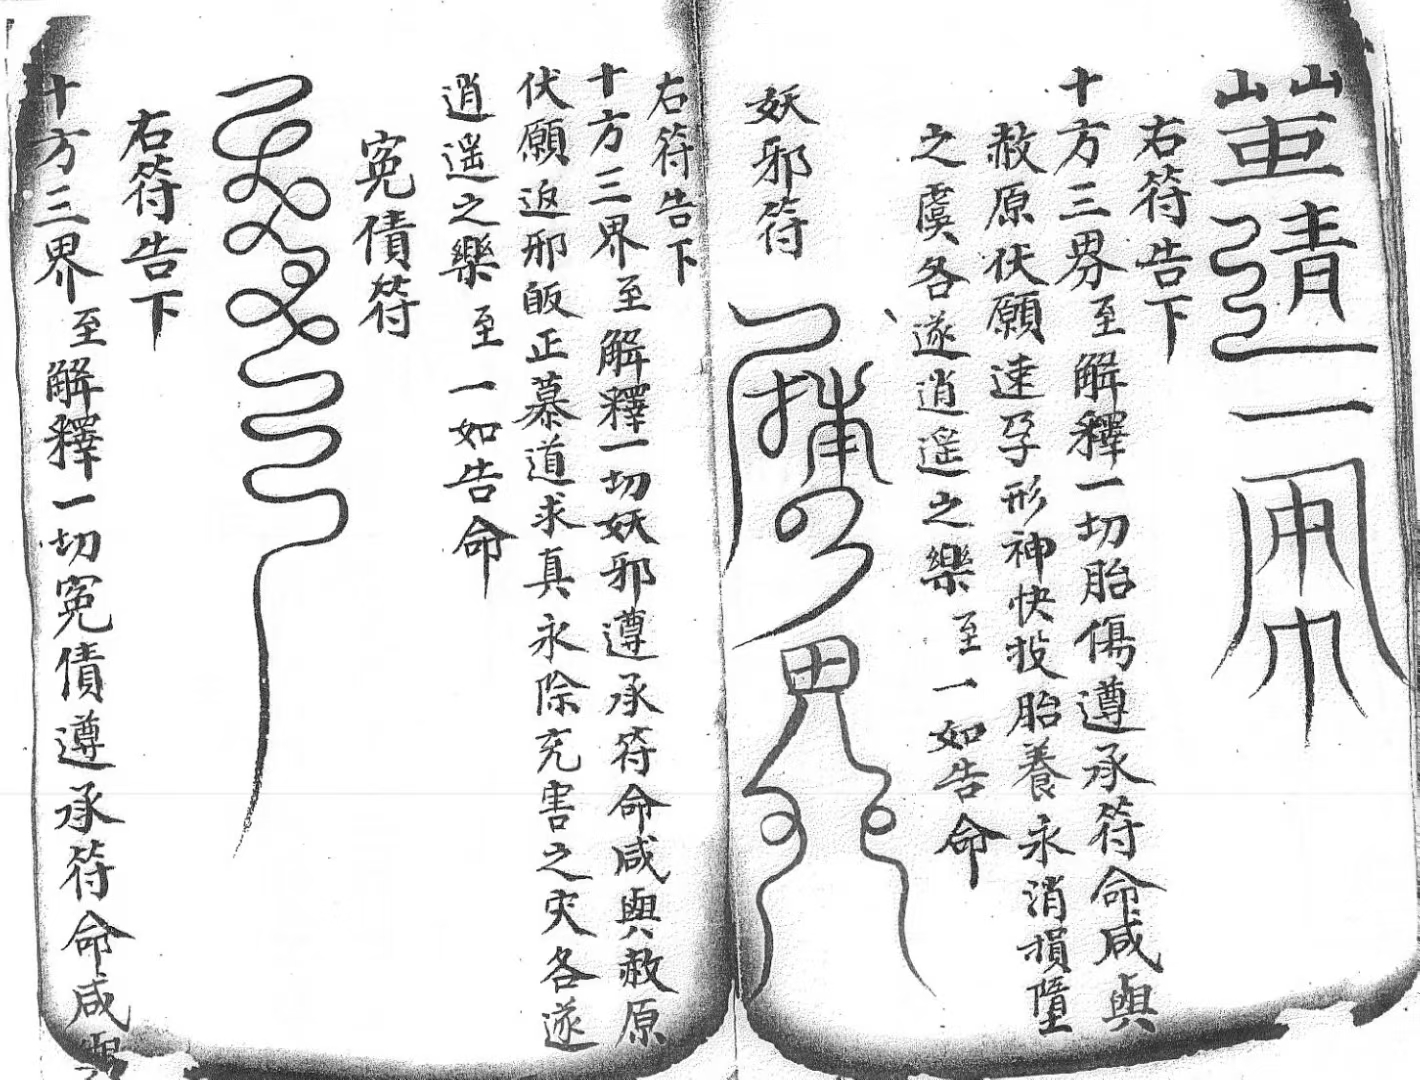 右符告下
十方三界至解釋一切胎傷遵承符命咸與
赦原伏願速孕形神快投胎養永消損墮
之虞各遂逍遙之樂至一如告命
妖邪符
右符告下
十方三界至解釋一切妖邪遵承符命咸與赦原
伏願返邪皈正慕道求真永除充害之灾各遂
逍遙之樂至一如告命
冤債符
右符告下
十方三界至解釋一切冤債遵承符命咸與